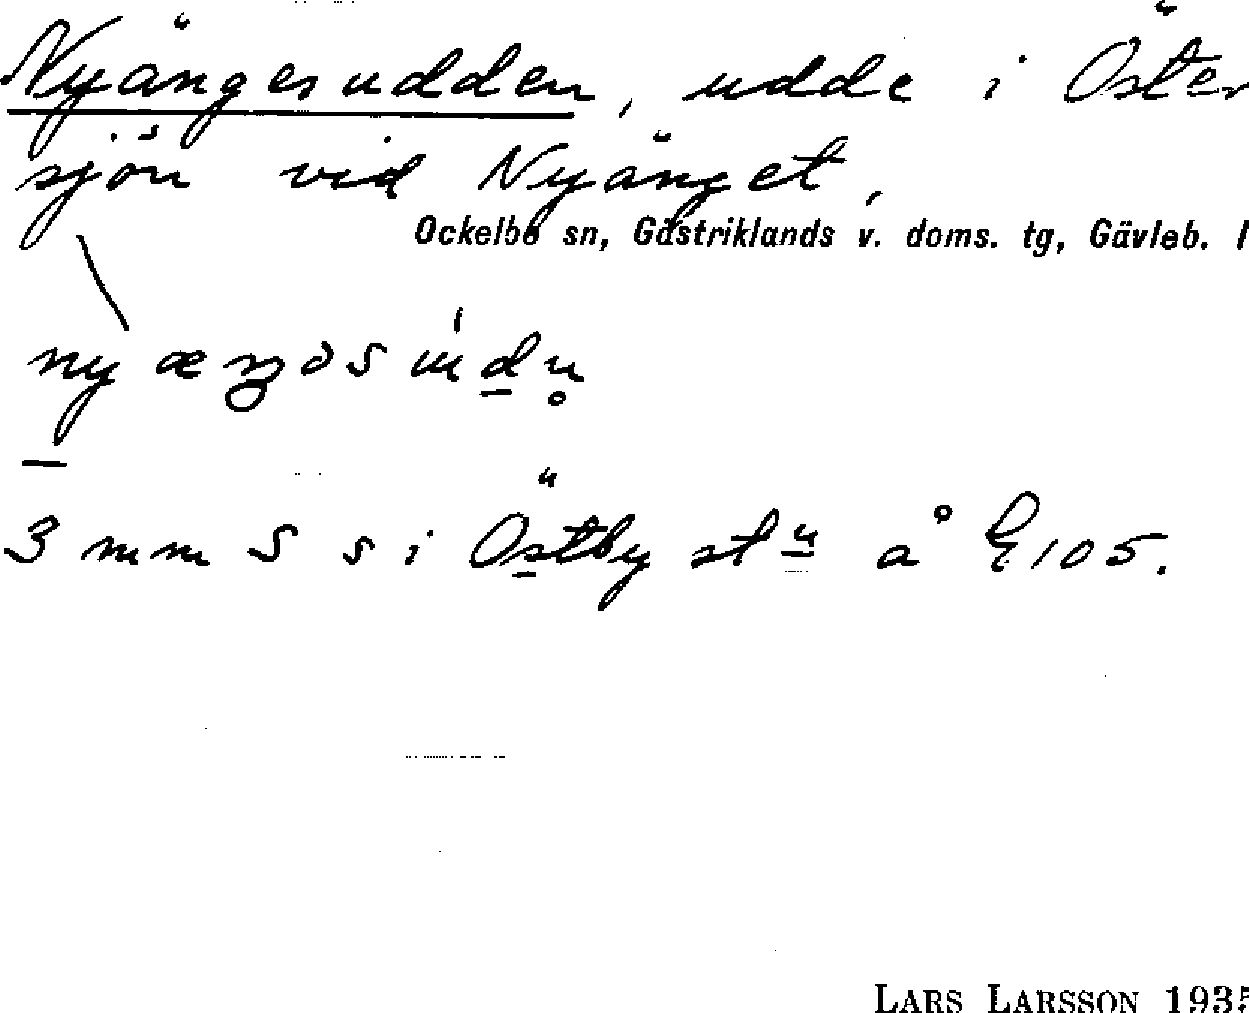 Nyängesudden, udde i Öster
sjön vid Nyänget,
Ockelbo sn, Gästriklands v. doms. tg, Gävleb. l
3 mm S s i Östby st u å E 105.
LARS LARSSON 1935